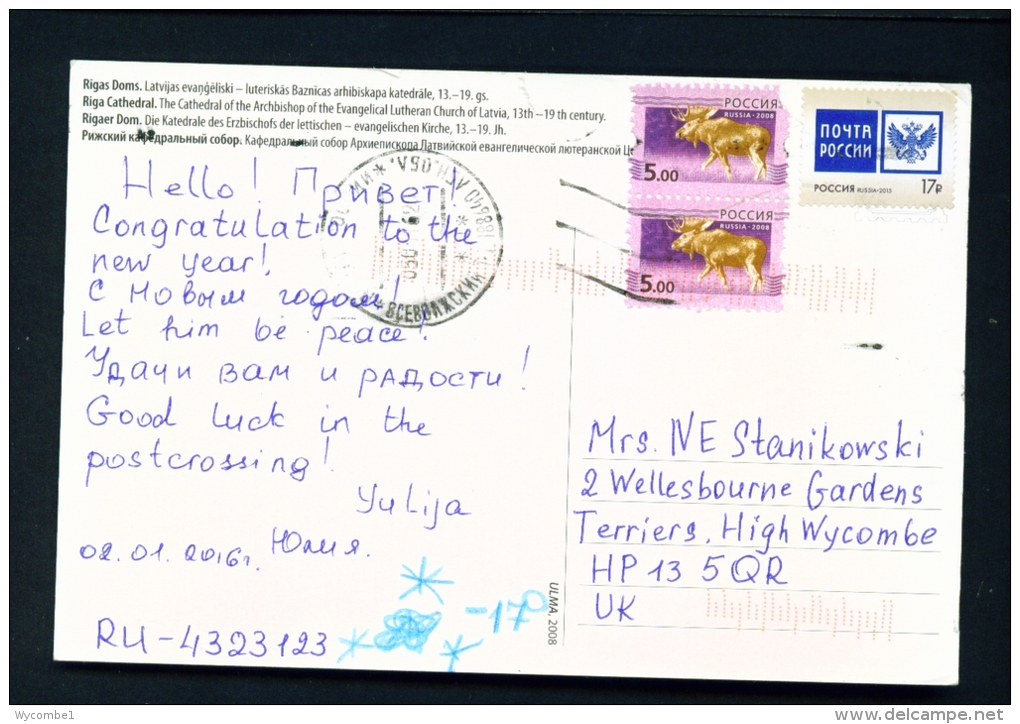 Rīgas Doms. Latvijas evaņģēliski – luteriskās Baznīcas arhibīskapa katedrāle, 13.–19. gs.
Riga Cathedral. The Cathedral of the Archbishop of the Evangelical Lutheran Church of Latvia, 13th –19 th century.
Rigaer Dom. Die Katedrale des Erzbischofs der lettischen – evangelischen Kirche, 13.–19. Jh.
Рижский кафедральный собор. Кафедральный собор Архиепископа Латвийской евангелической лютеранской
РОССИЯ
RUSSIA • 2008
5.00
РОССИЯ
RUSSIA • 2008
5.00
ПОЧТА
РОССИИ
РОССИЯ RUSSIA • 2015 17₽
ВСЕВОЛЖСКИЙ
Hello! Привет!
Congratulation to the
new year!
С новым годом!
Let him be peace!
Удачи вам и радости!
Good luck in the
postcrossing!
Yulija
02.01.2016г. Юлия.
-17°
RU-4323123
Mrs. NE Stanikowski
2 Wellesbourne Gardens
Terriers, High Wycombe
HP 13 5QR
UK
ULMA, 2008
Wycombe1
www.delcampe.net